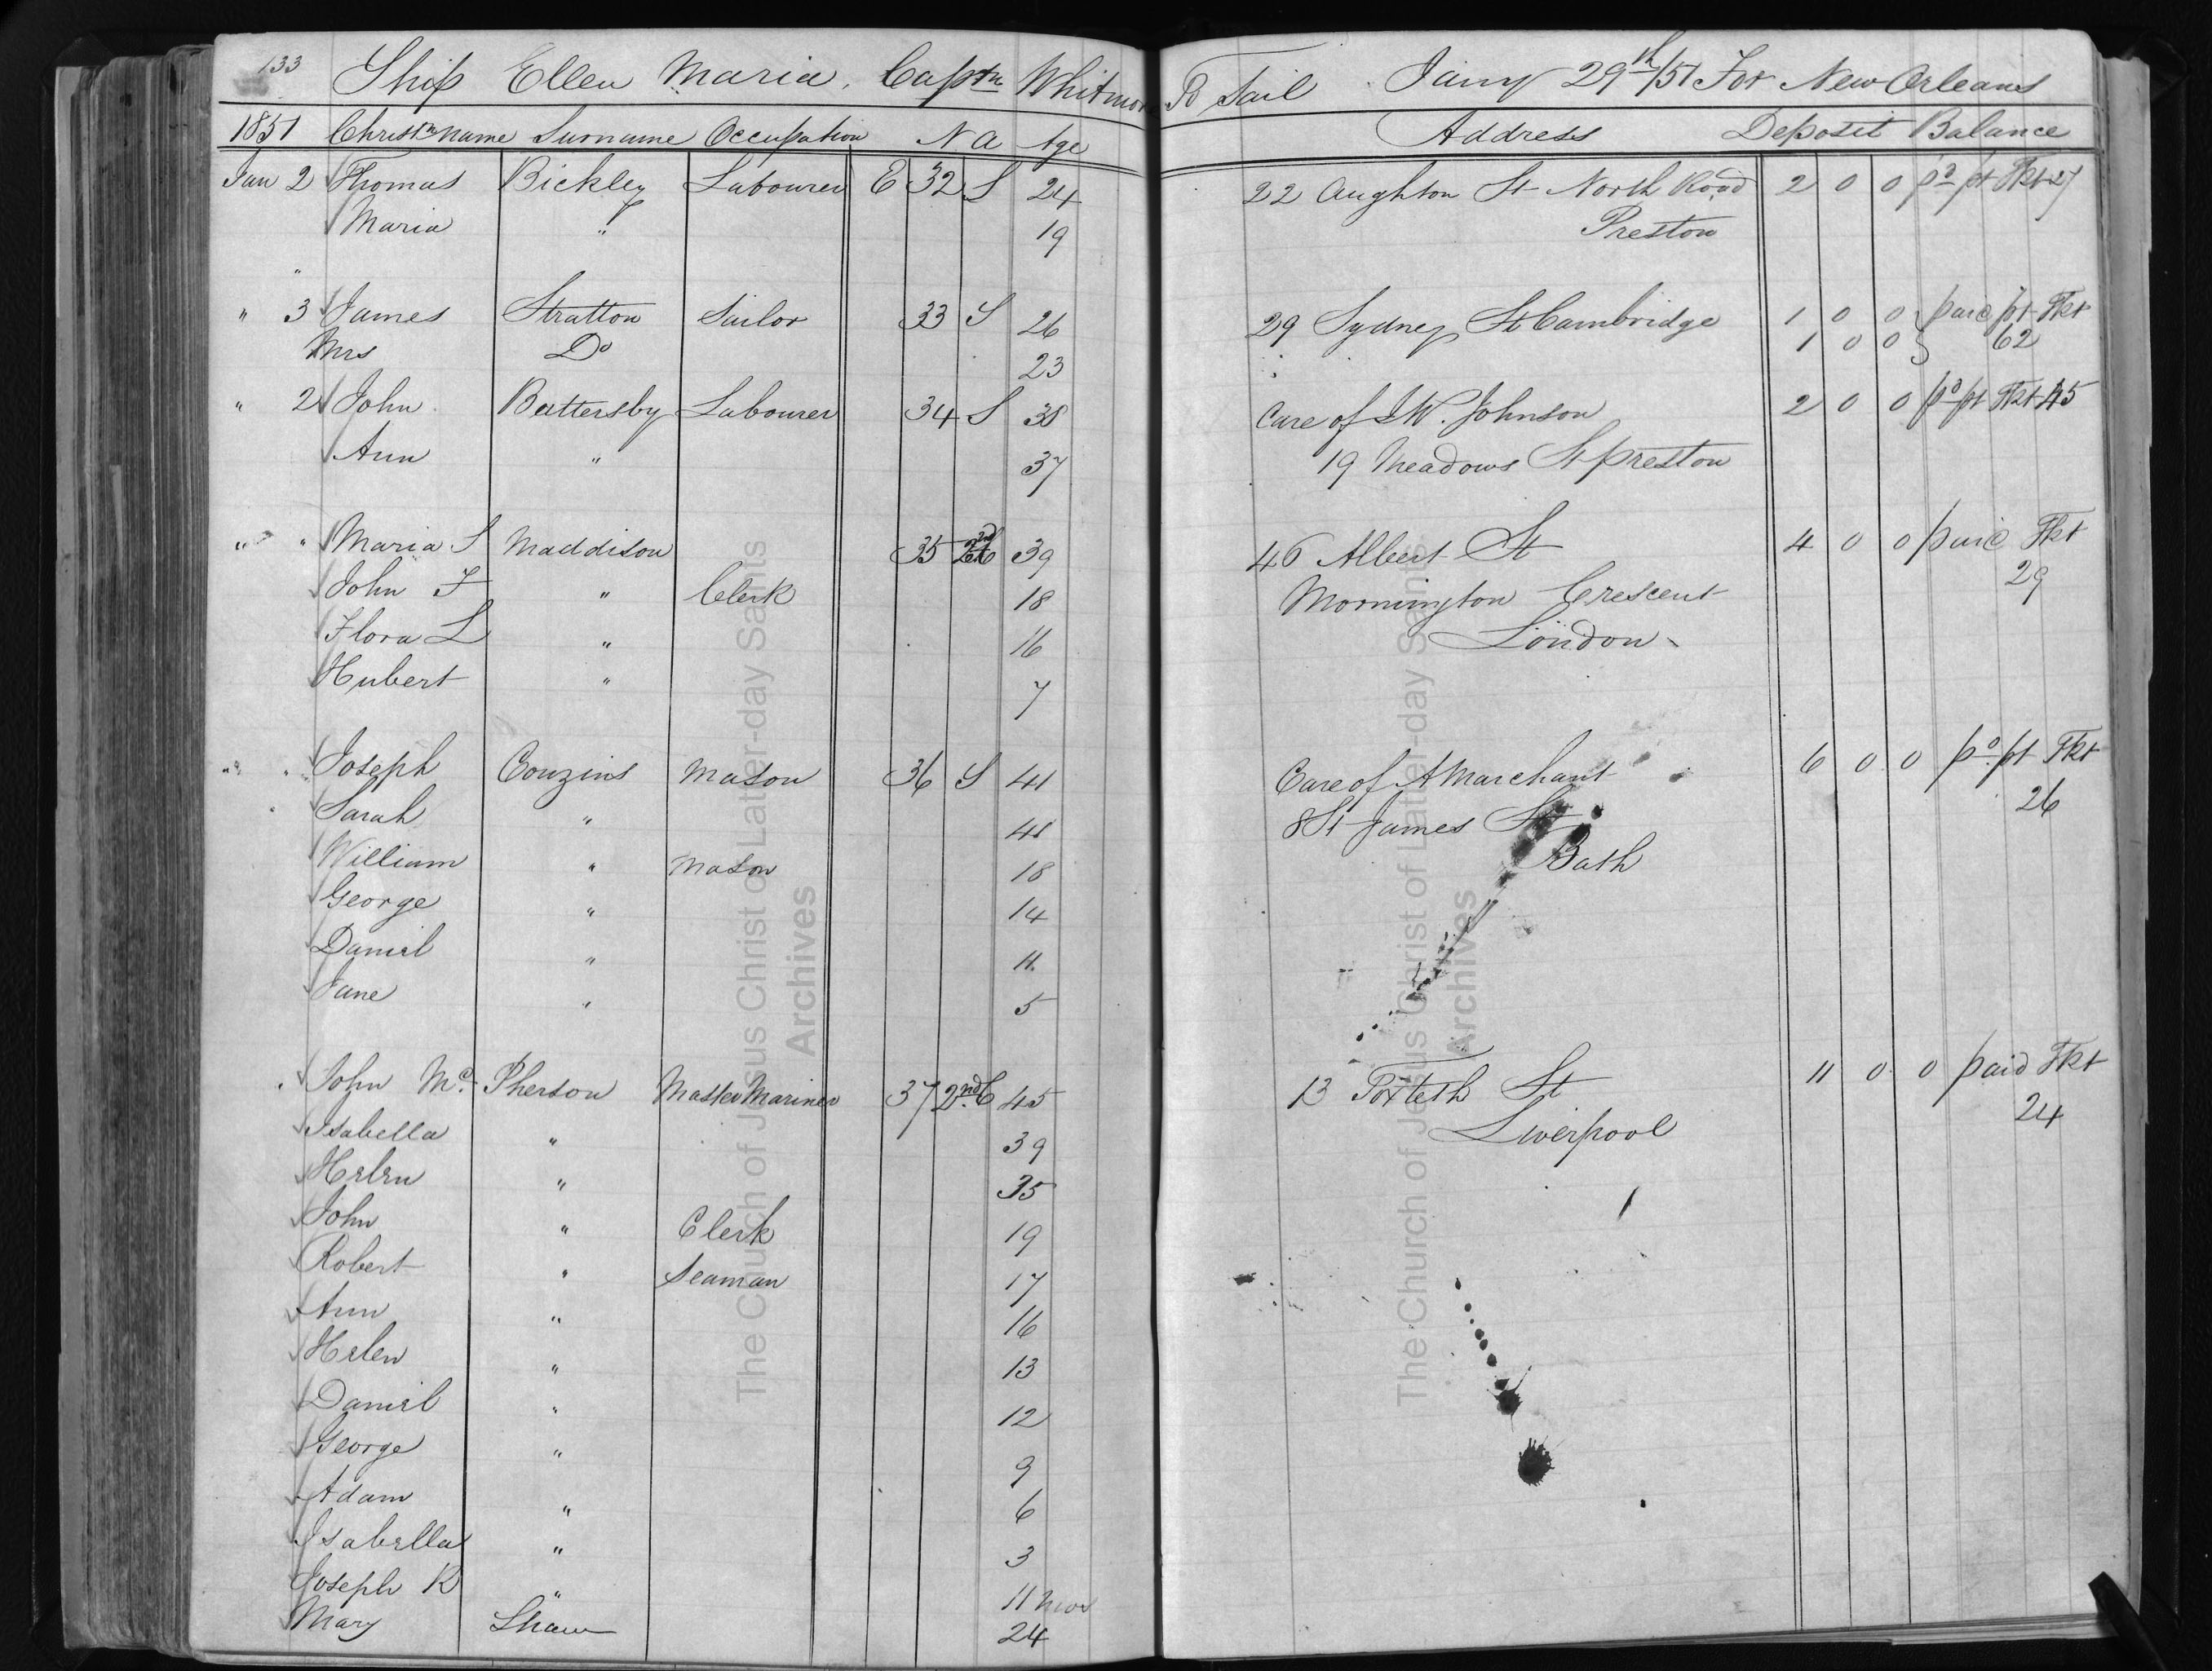 133 Ship Ellen Maria. Captn Whitmore To Sail Jany 29th/51 For New Orleans
1851 Christn name Surname Occupation N A Age Address Deposit Balance
Jan 2 Thomas Bickley Labourer E 32 S 24 22 Aughton St North Road 2 0 0 pd pt Tkt 27
Maria " 19 Preston
"
" 3 James Stratton Sailor 33 S 26 29 Sydney St Cambridge 1 0 0 paid pt Tkt
Mrs Do 23 1 0 0 62
" 2 John Battersby Labourer 34 S 38 Care of J W. Johnson 2 0 0 pd pt Tkt 45
Ann " 37 19 Meadows St Preston
" " Maria S Maddison 35 39 46 Albert St 4 0 0 paid Tkt
John F " Clerk 18 Mornington Crescent 29
Flora L " 16 London
Hubert " 7
" " Joseph Couzins Mason 36 S 41 Care of A Marchant 6 0 0 pd pt Tkt
Sarah " 41 8 St James St 26
William " Mason 18 Bath
George " 14
Daniel " 11
Jane " 5
John Mc Pherson Master Mariner 37 2nd C 45 13 Toxteth St 11 0 0 paid Tkt
Isabella " 39 Liverpool 24
Helen " 35
John " Clerk 19
Robert " Seaman 17
Ann " 16
Helen " 13
Daniel " 12
George " 9
Adam " 6
Isabella " 3
Joseph R " 11 mos
Mary Shaw 24
The Church of Jesus Christ of Latter-day Saints
Archives
The Church of Jesus Christ of Latter-day Saints
Archives